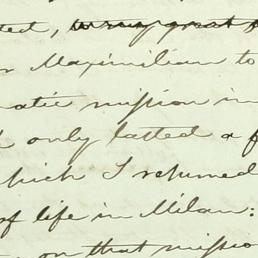 ted, in very great
r Maximilian to
matic mission in
h only lasted a f
which I returned
of life in Milan:
on that missio